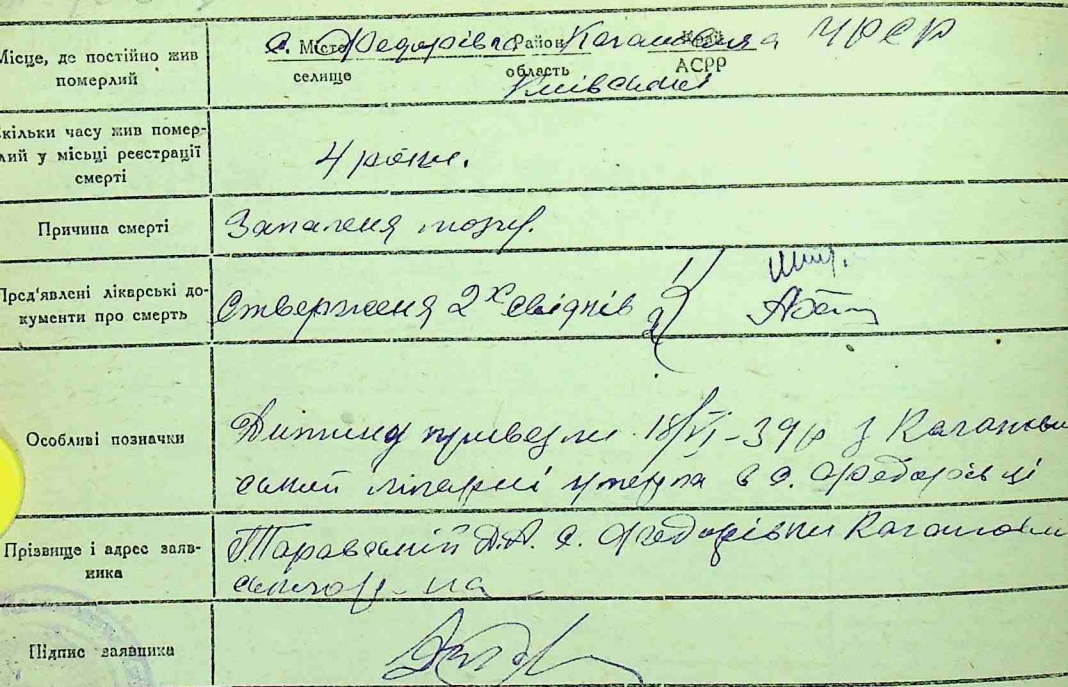 Місце, де постійно жив
померлий
Місто Район Край
селище область АСРР
с. Федорівка Кагановича УРСР
Київської
Скільки часу жив помер-
лий у місці реєстрації
смерті
4 роки.
Причина смерті
Запаленя мозгу.
Пред'явлені лікарські до-
кументи про смерть
Стверженя 2х свідків
Особливі позначки
Дитину привезли 18/VI-39р з Каганови
ській лікарні умерла в с. Федорівці
Прізвище і адрес заяв-
ника
Таравський А.А. с. Федорівки Каганови
Підпис заявника